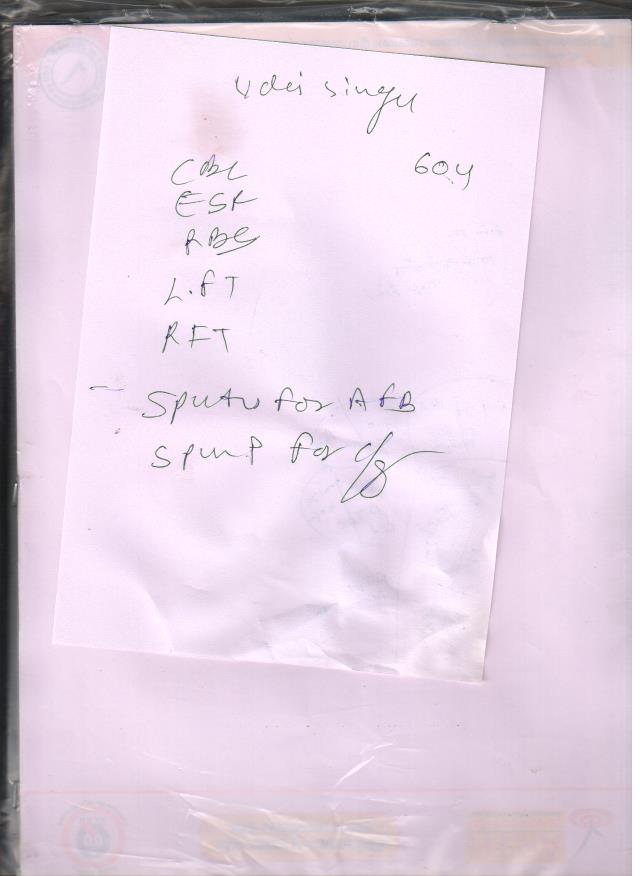 Udei Singh
CBC 60y
ESR
RBS
L.FT
RFT
- Sputu for AFB
Sput for c/s